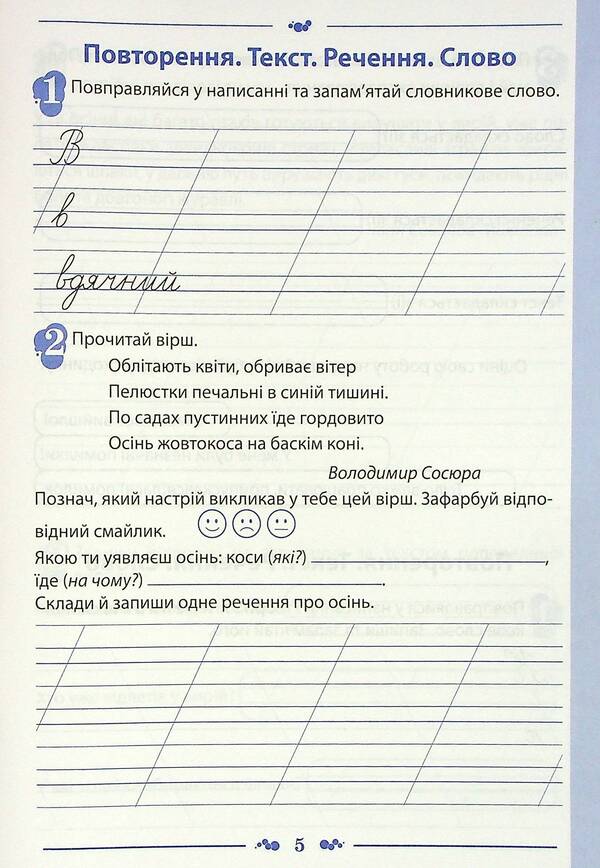 Повторення. Текст. Речення. Слово
1 Повправляйся у написанні та запам’ятай словникове слово.
В
в
вдячний
2 Прочитай вірш.
Облітають квіти, обриває вітер
Пелюстки печальні в синій тишині.
По садах пустинних їде гордовито
Осінь жовтокоса на баскім коні.
Володимир Сосюра
Познач, який настрій викликав у тебе цей вірш. Зафарбуй відпо-
відний смайлик.
Якою ти уявляєш осінь: коси (які?) ,
їде (на чому?) .
Склади й запиши одне речення про осінь.
5